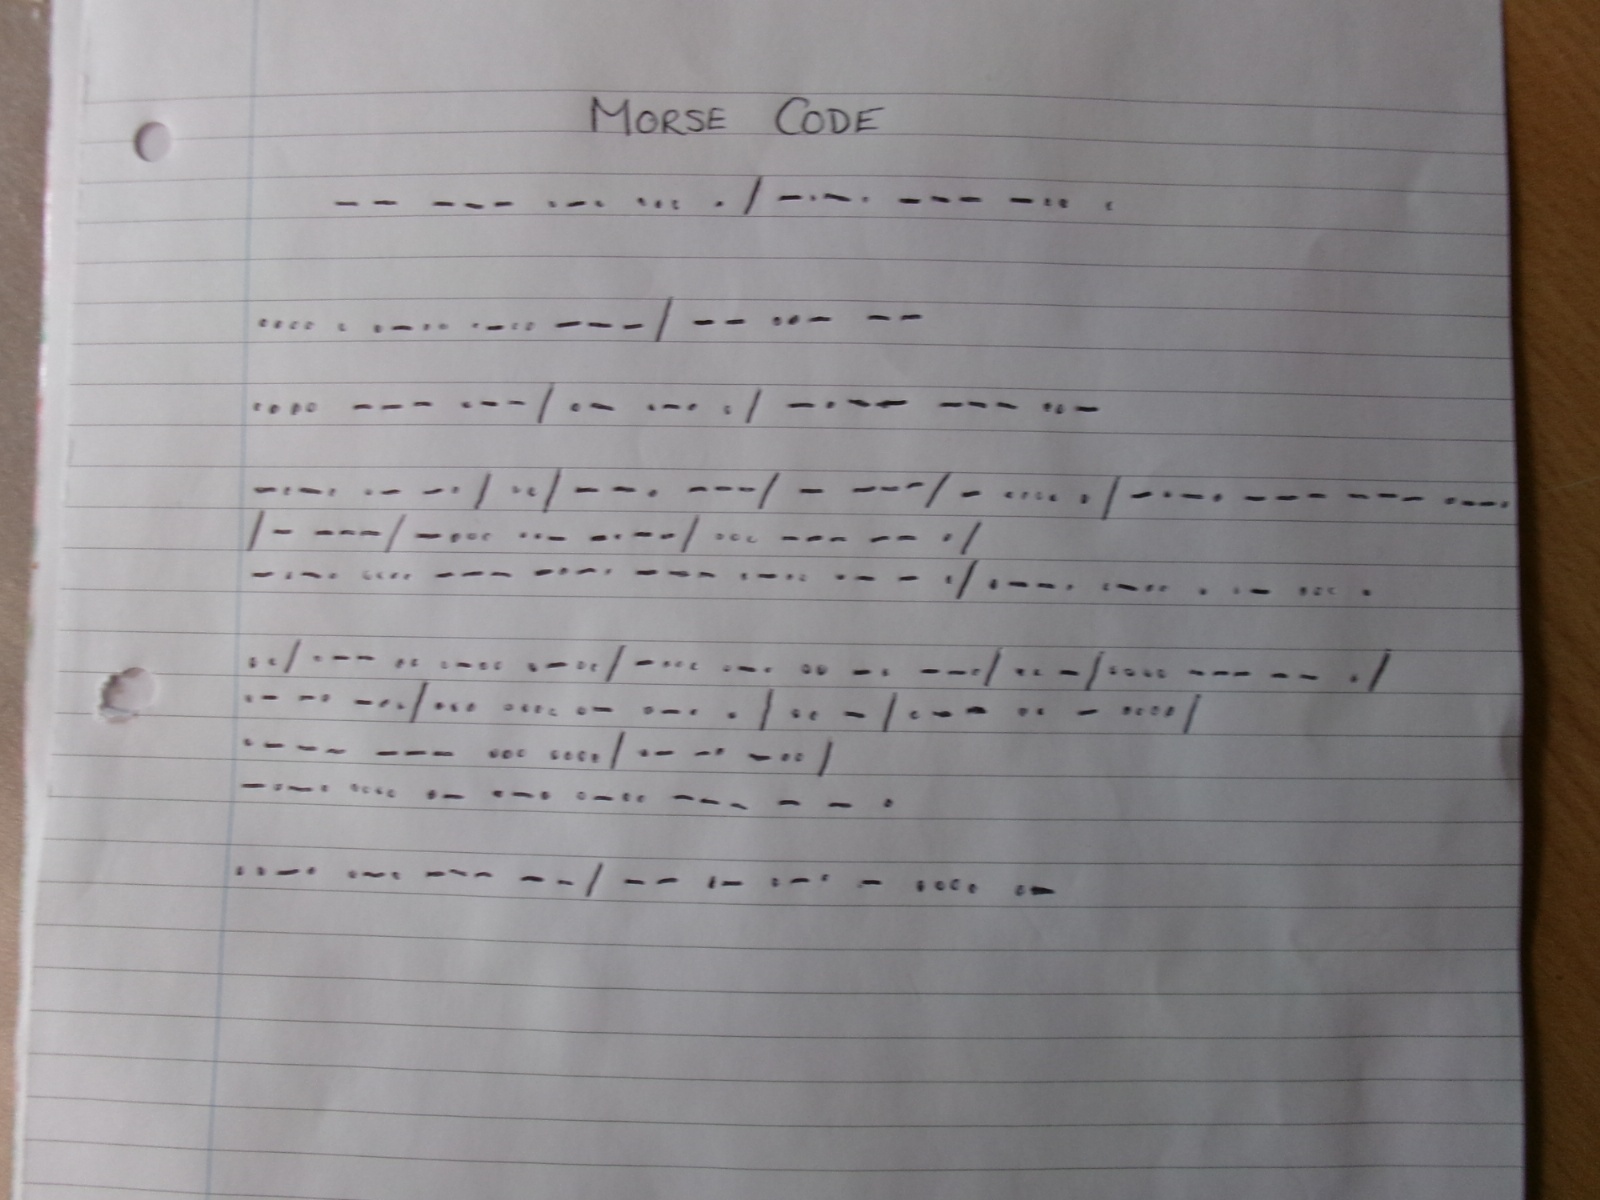 MORSE CODE
-- --- .-. ... . / -.-. --- -.. .
.... . .-.. .-.. --- / -- ..- --
.... --- .-- / .- .-. . / -.-- --- ..-
-.-. .- -. / .. / --. --- / - --- / - .... . / -.-. --- --- .--.
/ - --- / -... ..- -.-- / ... --- -- . /
-.-. .... --- -.-. --- .-.. .- - . / .--. .-.. . .- ... .
.. / .-- .. .-.. .-.. / -... .-. .. -. --. / .. - / .... --- -- . /
.- -. -.. / ... .... .- .-. . / .. - / .-- .. - .... /
.--- --- ... .... / .- -. -.. /
-.-. .... .- .-. .-.. --- - - .
..-. .-. --- -- / -- .- .-. - .... .-